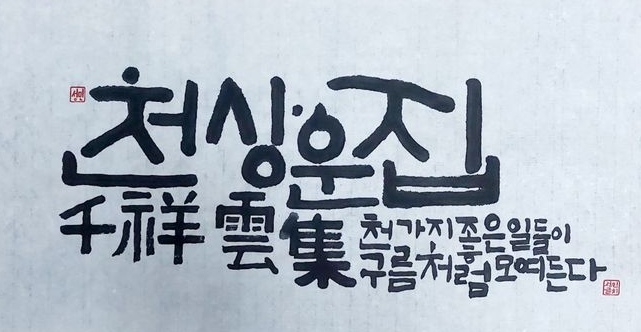 천상운집
千祥雲集
천가지 좋은 일들이
구름처럼 모여든다